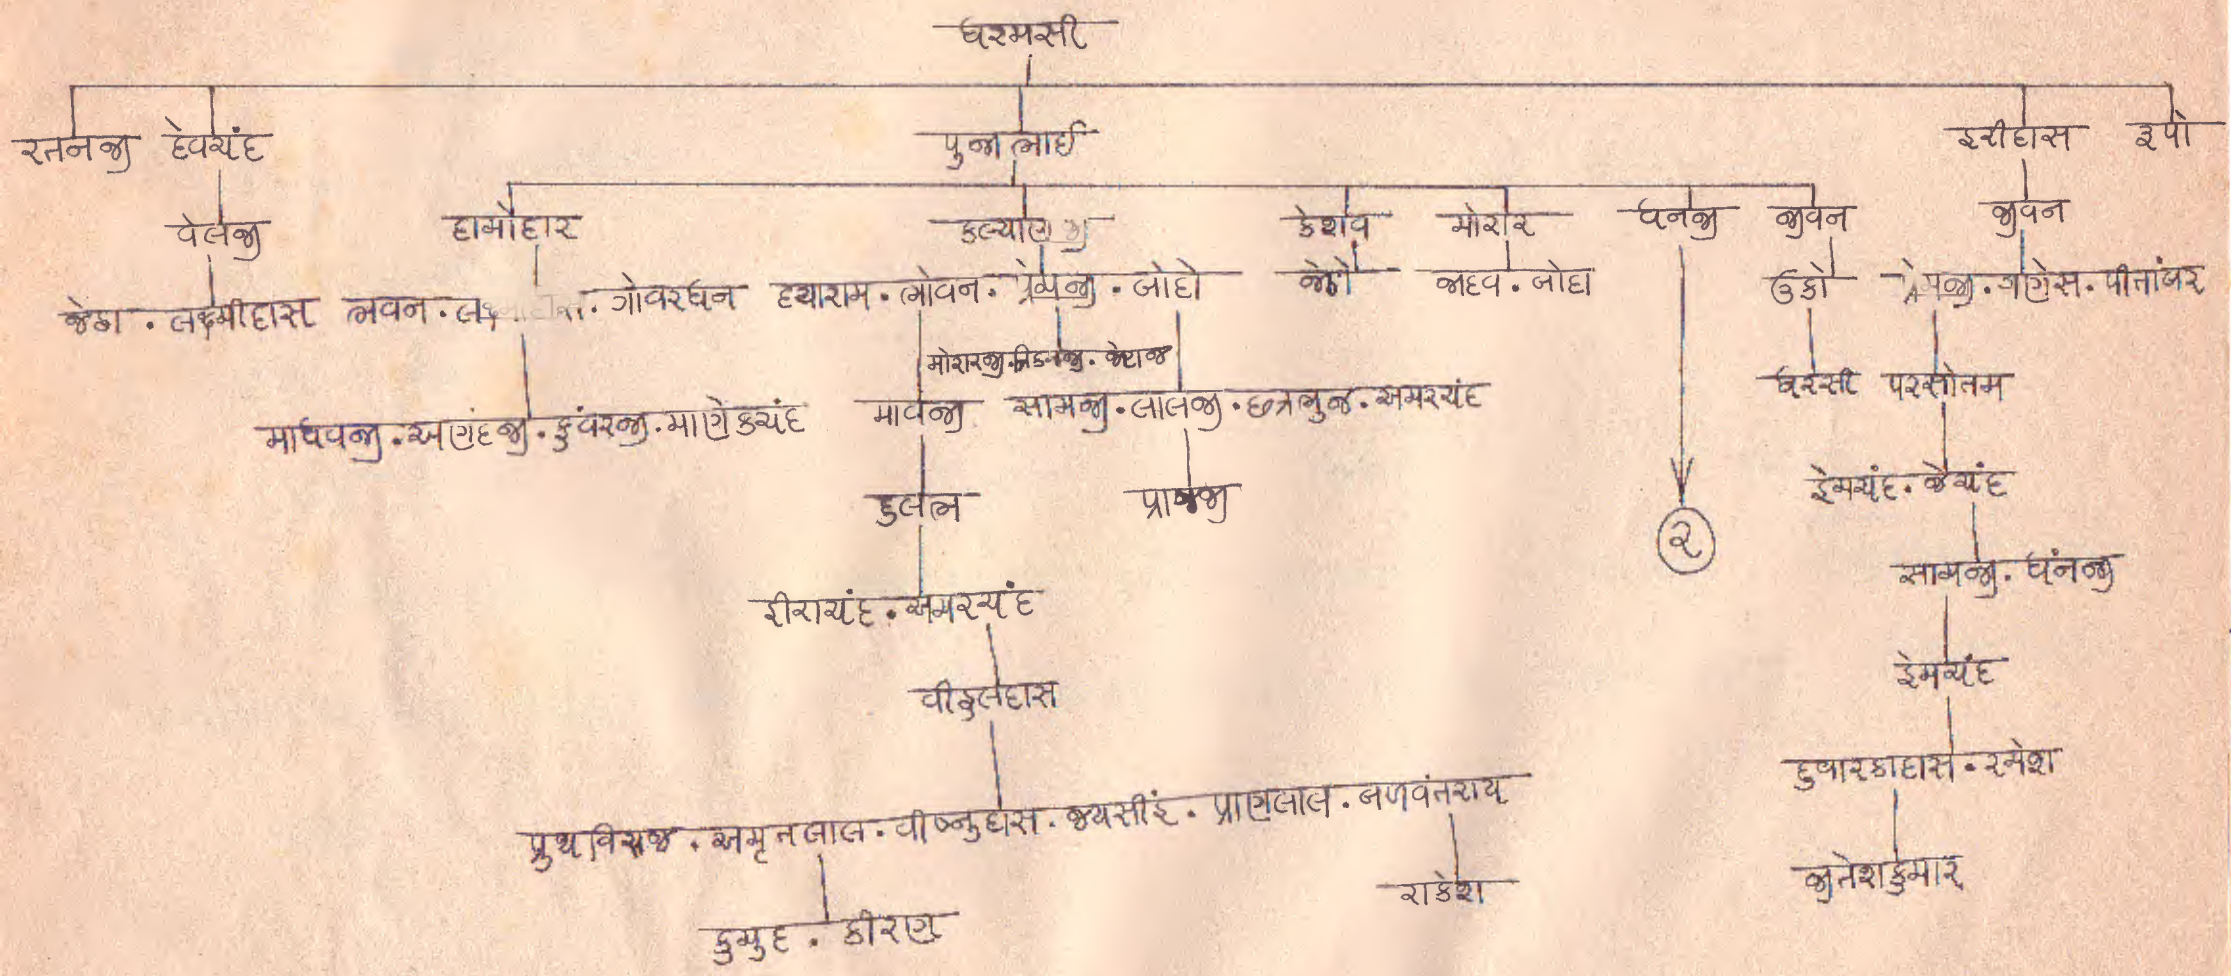 ધરમસી
રતનજી દેવચંદ પુજાભાઈ હરીદાસ રૂપો
વેલજી દામોદાર કલ્યાણજી કેશવ મોરાર ધનજી જીવન જીવન
જેઠા . લક્ષ્મીદાસ ભવન . ગોવરધન દયારામ . ભોવન . પ્રેમજી . બોદો જેઠો જાદવ . બોદા ઉકો પ્રેમજી . ગણેસ . પીતાંબર
મોરારજી . . જેરાજ
માધવજી . અણંદજી . કુંવરજી . માણેકચંદ માવજી સામજી . લાલજી . છત્રભુજ . અમરચંદ ધરસી પરસોતમ
દુલભ પ્રાગજી હેમચંદ . જેચંદ
૨
સામજી . ધનજી
હીરાચંદ . અમરચંદ
વીઠલદાસ હેમચંદ
દુવારકાદાસ . રમેશ
પ્રુથવિરાજ . અમૃતલાલ . વીષ્નુદાસ . જયસીંહ . પ્રાણલાલ . બળવંતરાય
રાકેશ જીતેશકુમાર
કુમુદ . કીરણ